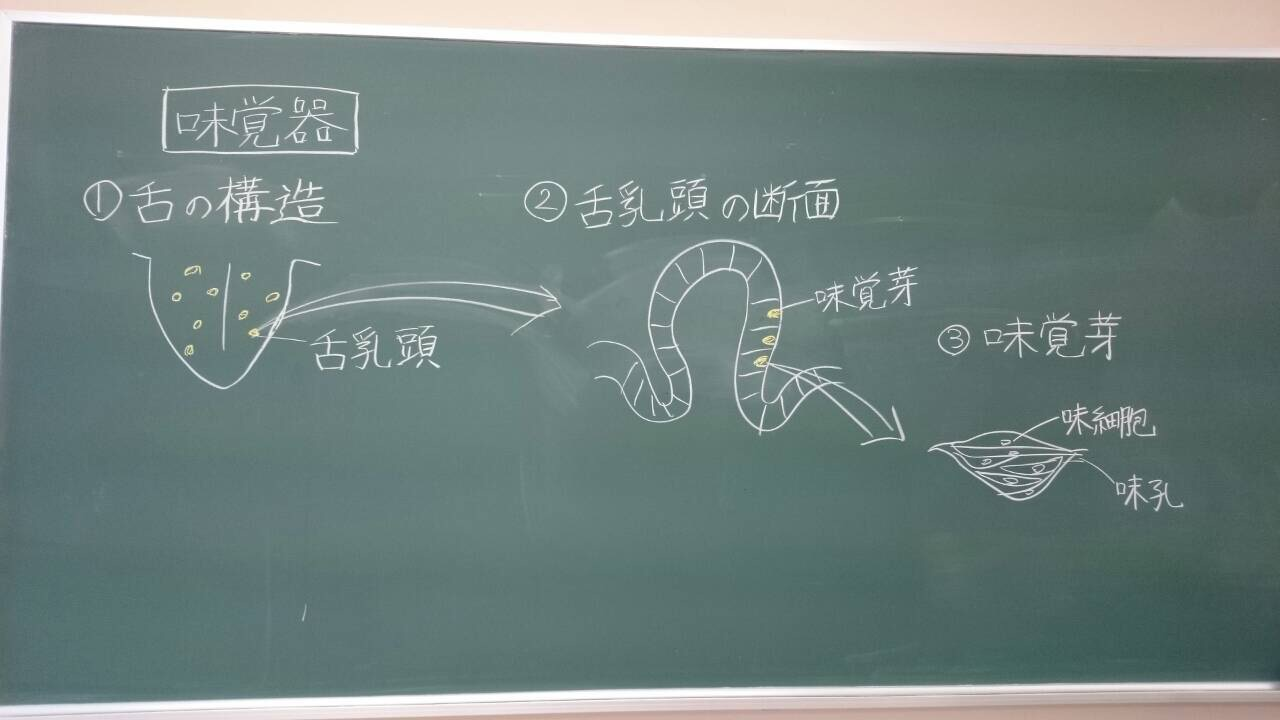 味覚器
①舌の構造
舌乳頭
②舌乳頭の断面
味覚芽
③味覚芽
味細胞
味孔